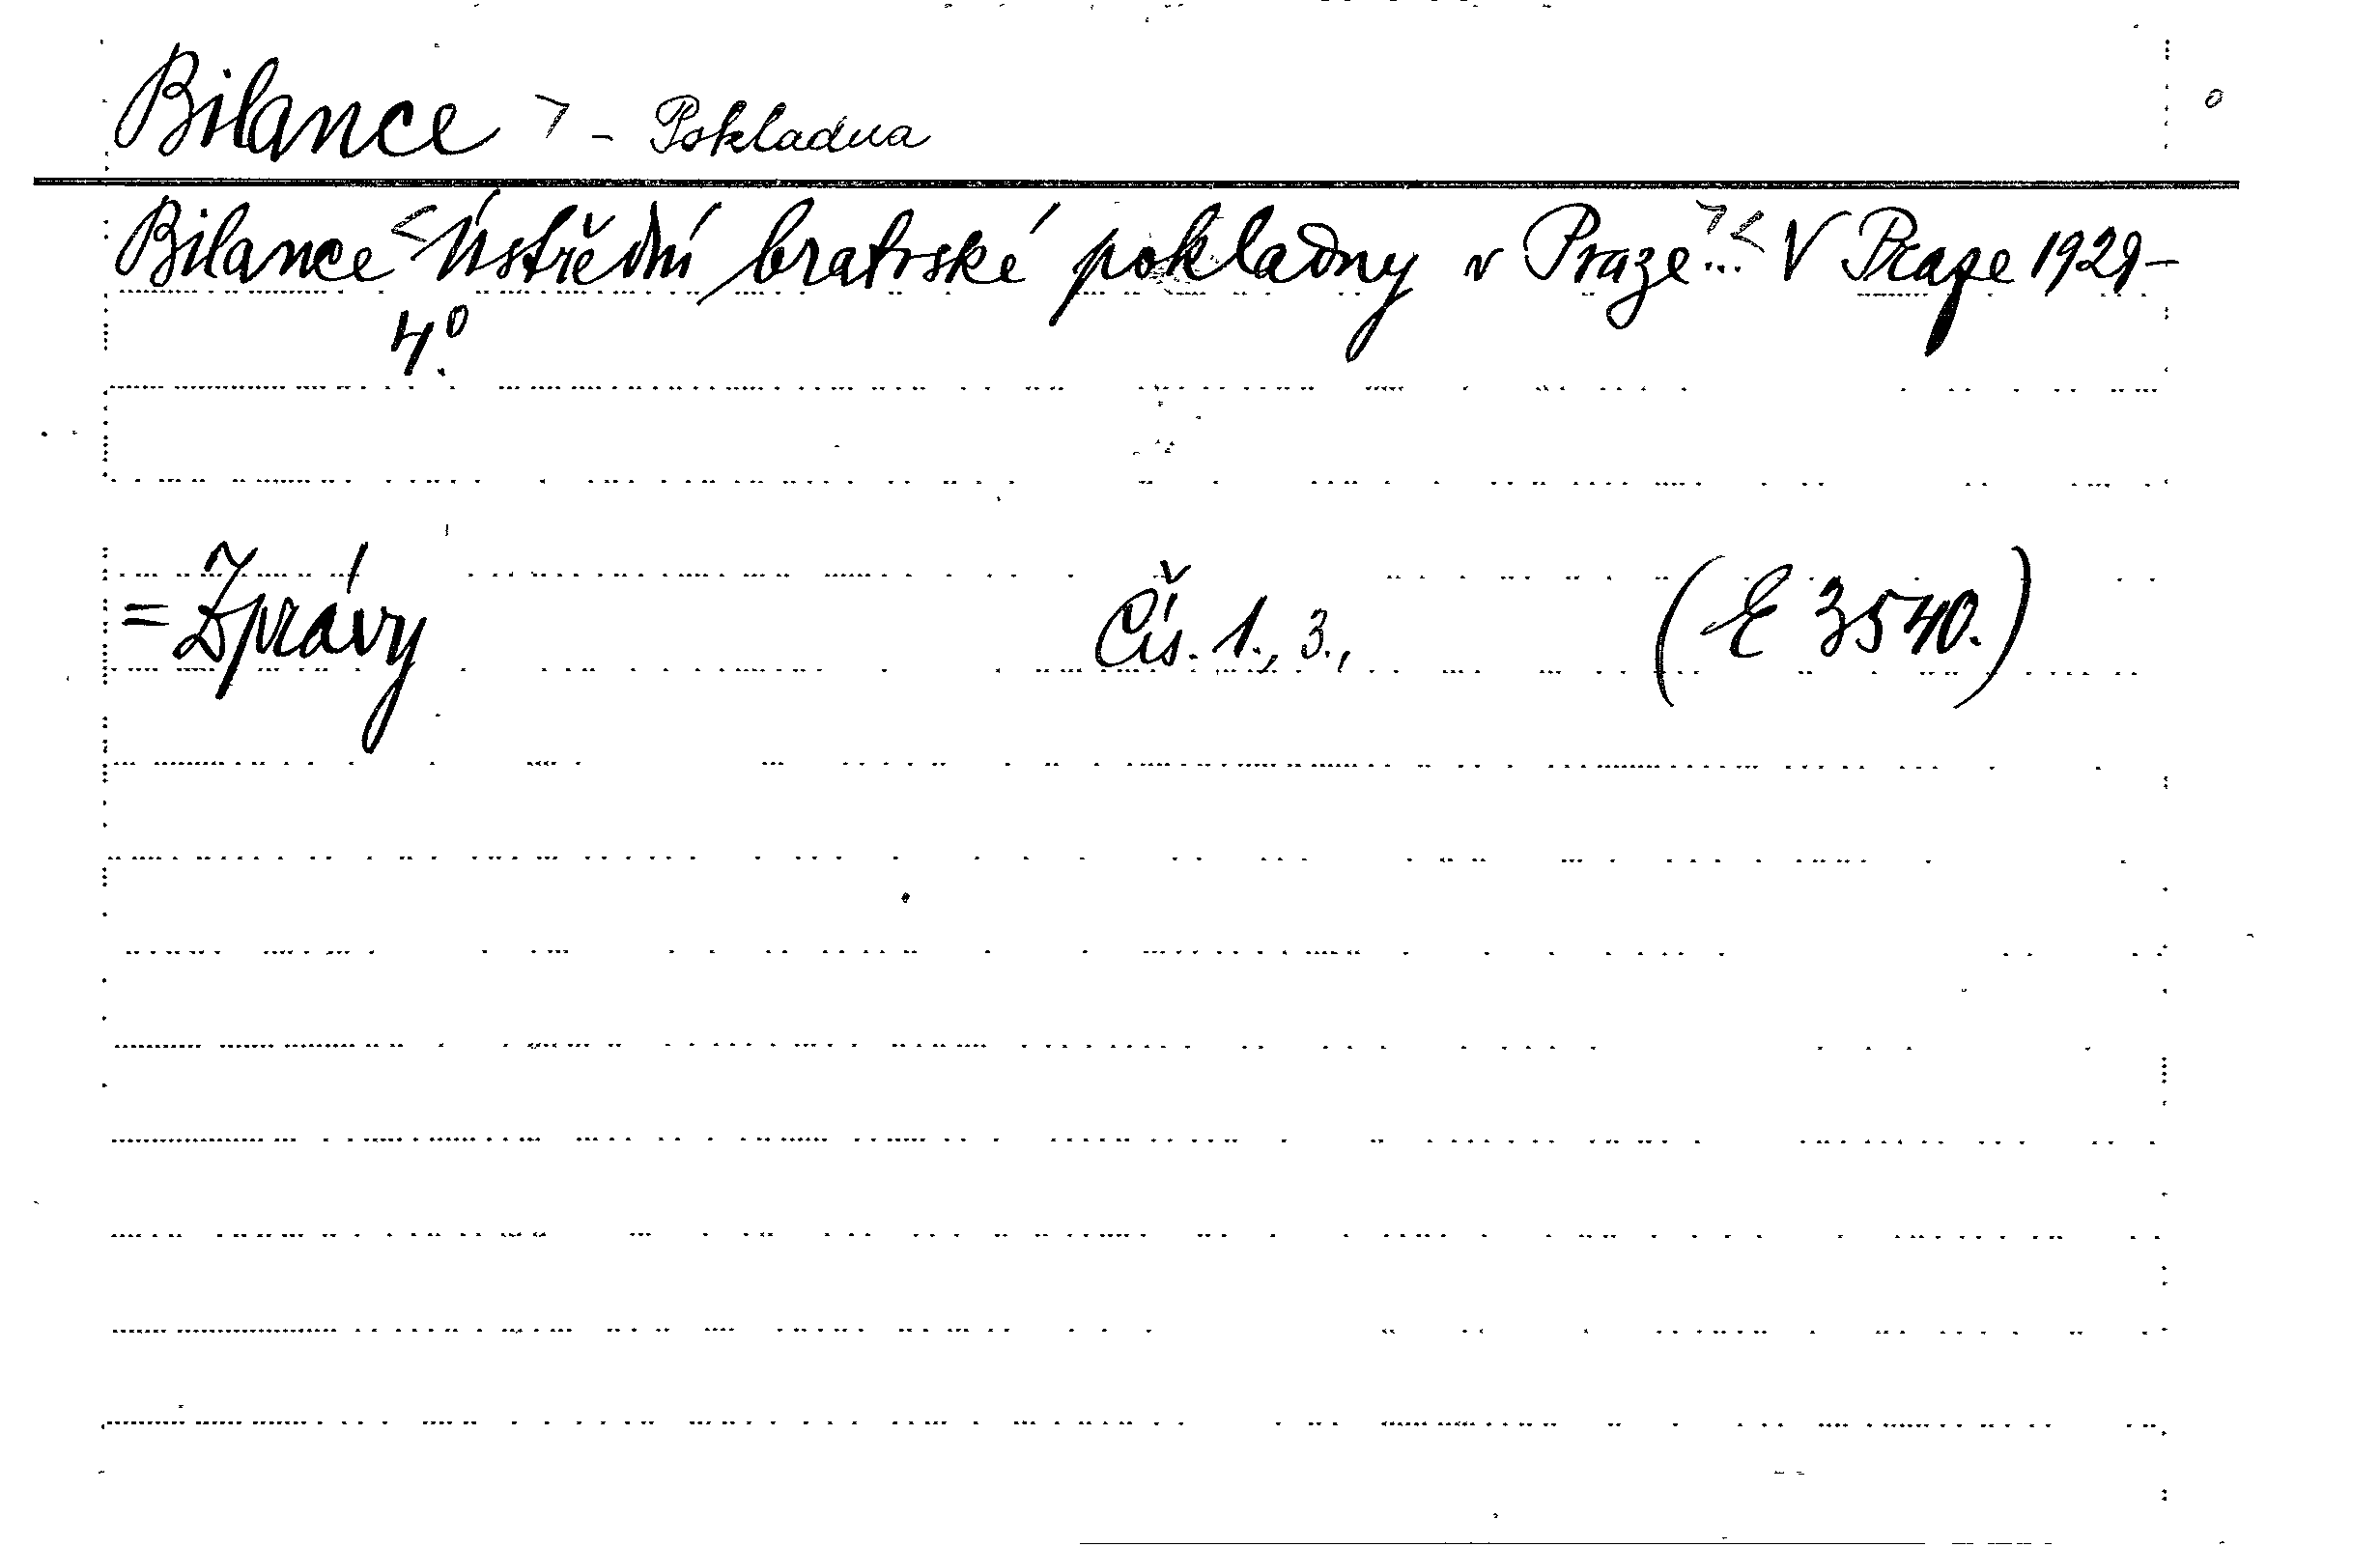 Bilance > - Pokladna
Bilance < Ústřední bratrské pokladny v Praze > ... < V Praze 1929-
4°.
= Zprávy Čís. 1., 3., (E 3540.)